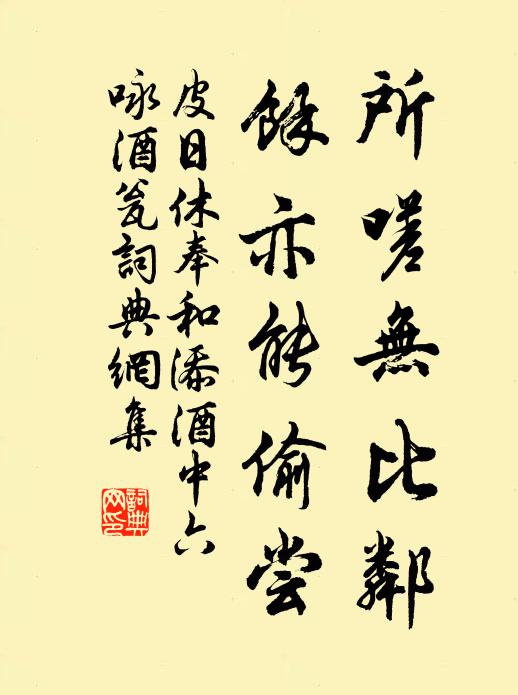 所嗟無比鄰
餘亦能偷嘗
皮日休奉和添酒中六
咏酒瓮詞典網集
詞典
网印